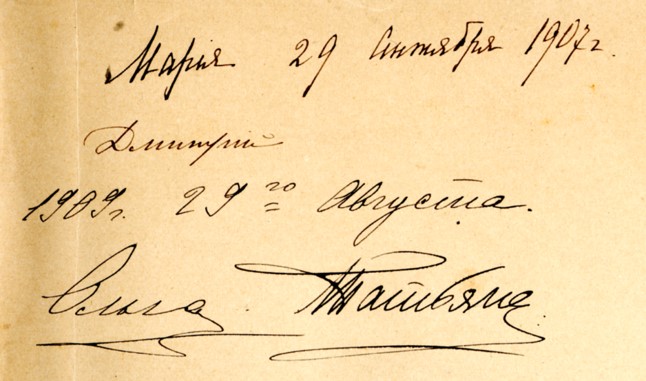 Мария 29 Сентября 1907 г.
Дмитрий
1909 г. 29го Августа.
Ольга Татьяна